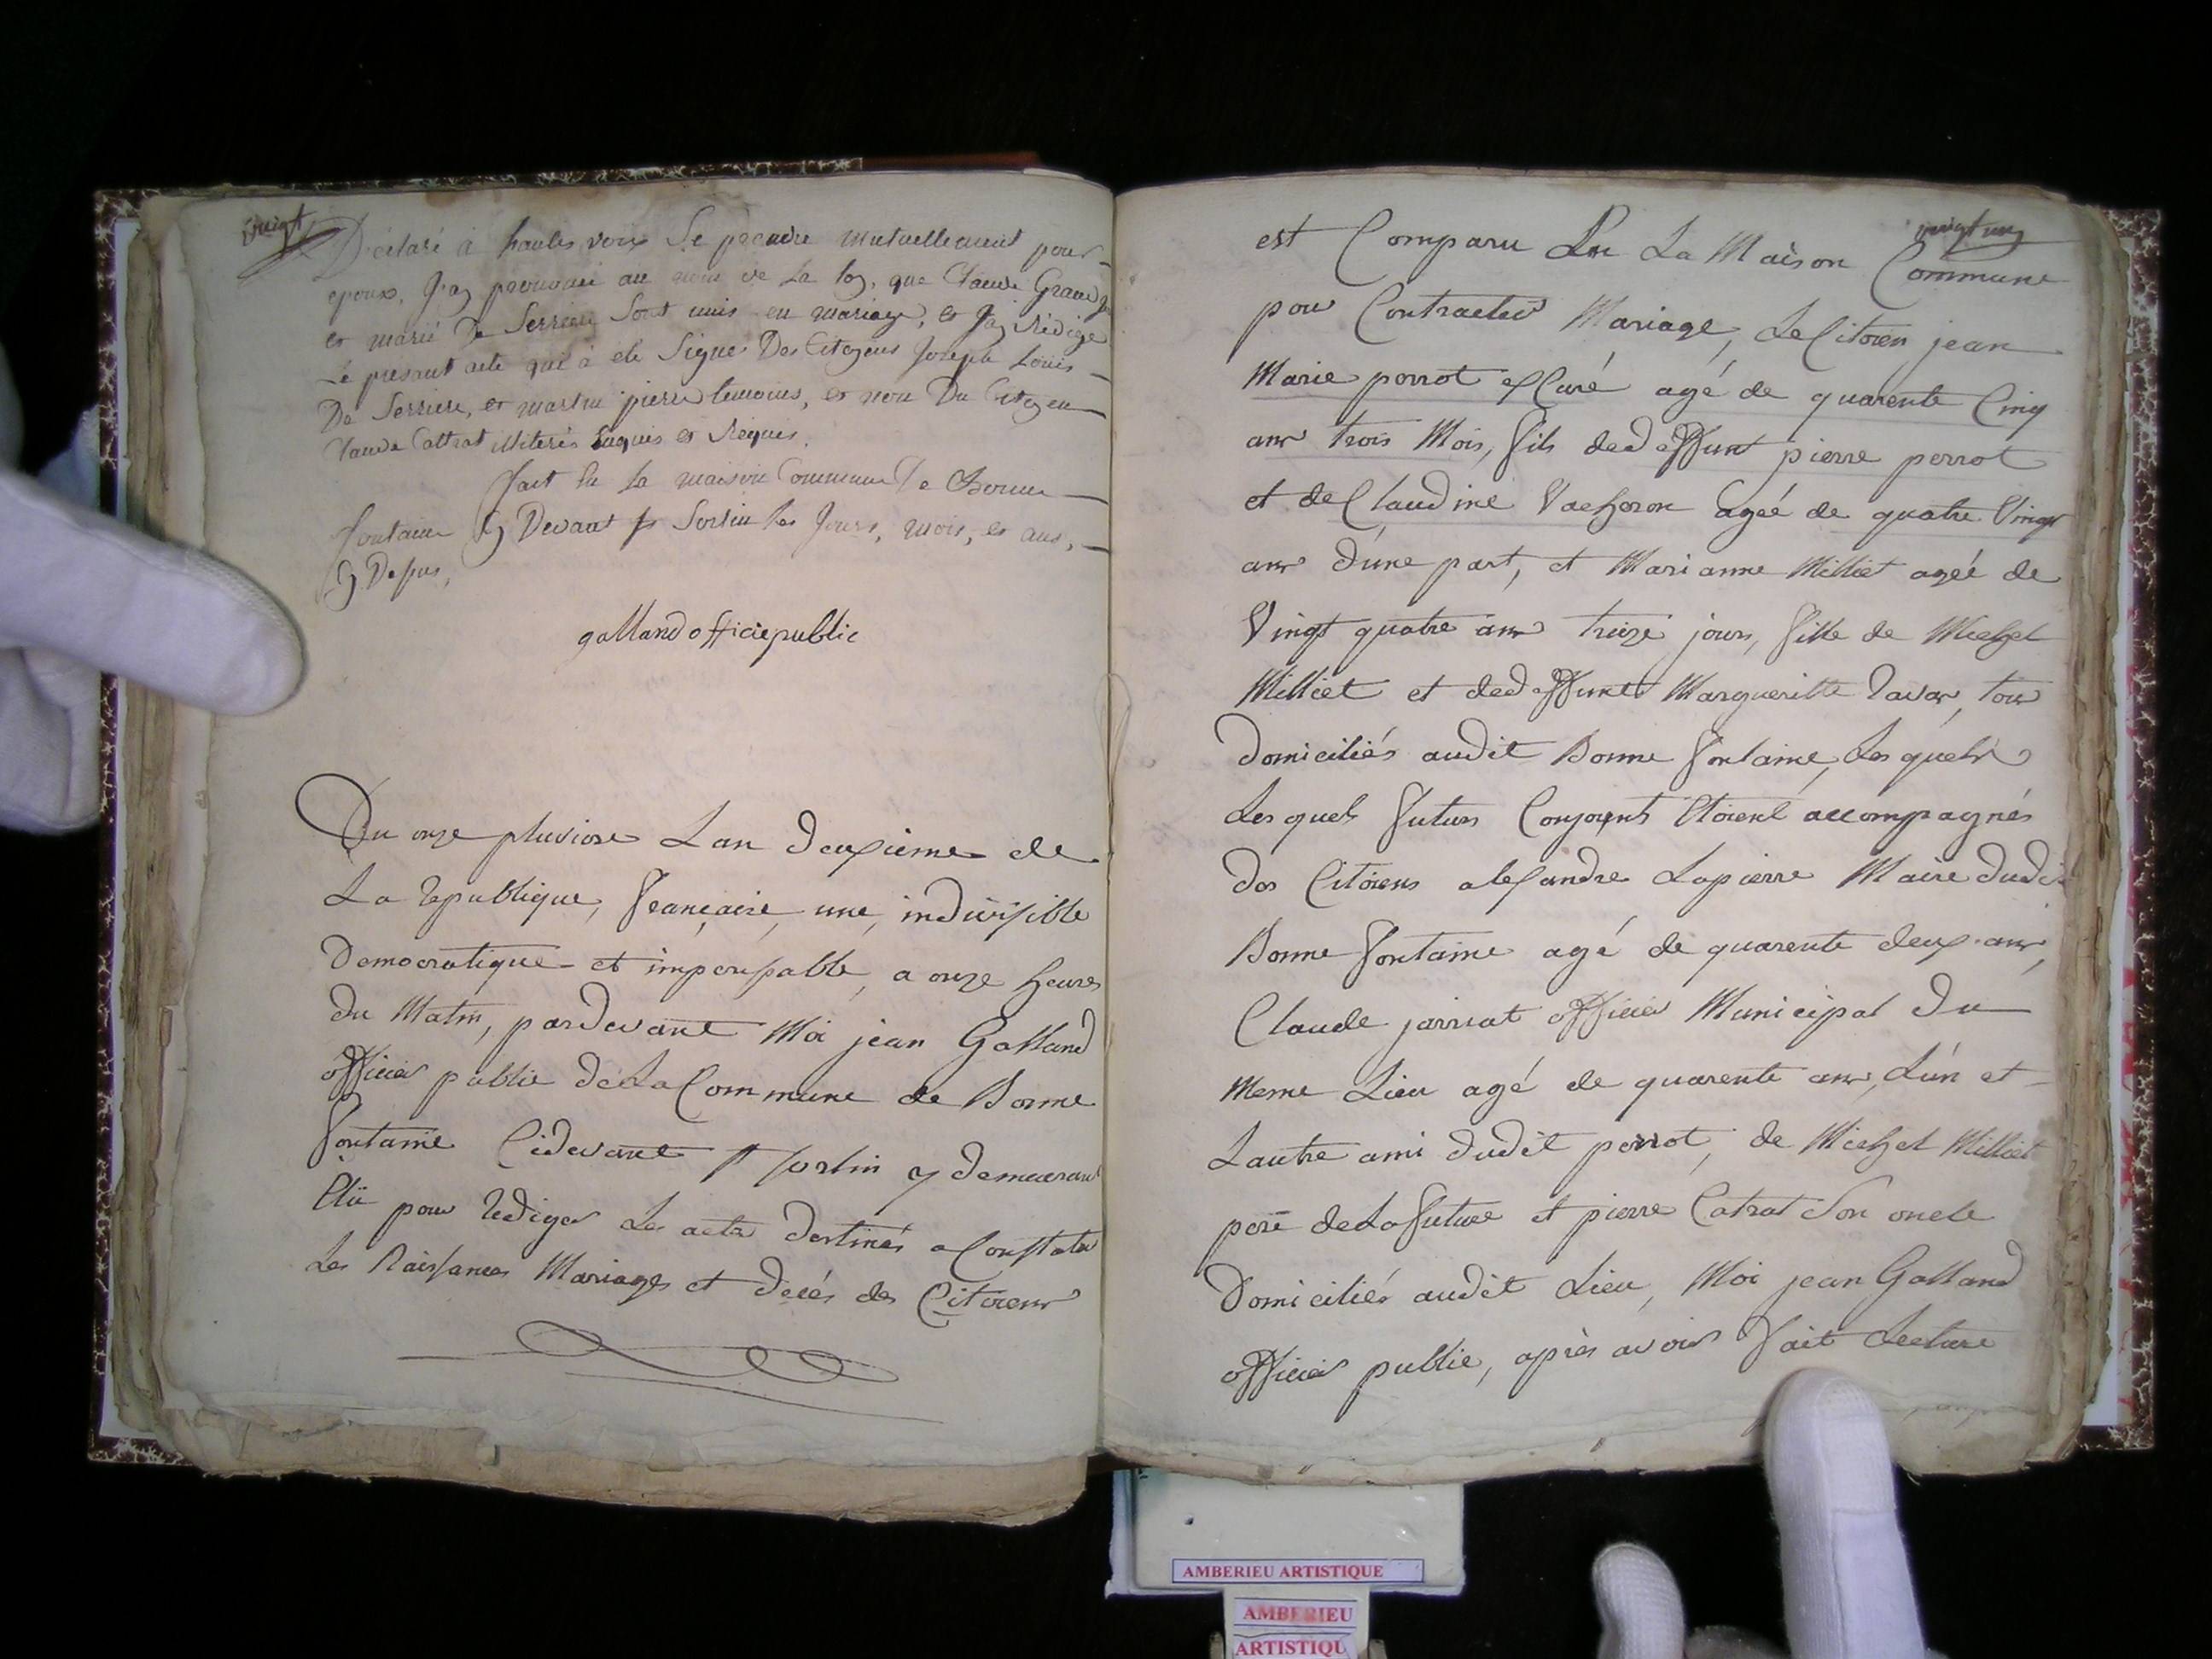 vingt
Déclaré à hautes voix Se prendre mutuellement pour
epoux, J'ay prononcé au nom de La loy, que Claude Grand
et marie De Serriere Sont unis en mariage, et J'ay Rédigé
Le present acte qui à ete Signé Des Citoyens Joseph Louis
De Serriere, et martin pierre temoins, et non Du Citoyen
Claude Cattrat illiterés Enquis et Requis,
fait En La maison Commune De Bonne
fontaine Cy Devant St Sorlin Les Jours, mois, et ans,
Cy Dessus,
galland officie public
Du onze pluviose Lan deuxieme de
La republique, française, une, indivisible
Democratique et imperissable, a onze heures
du Matin, pardevant Moi jean Galland
officier public de La Commune de Bonne
fontaine Cidevant St sorlin y demeurant
Elü pour rediger Les actes destinés a Constater
Les Naissances Mariages et decés des Citoiens
vingt un
est Comparu En La Maison Commune
pour Contracter Mariage, Le Citoien jean
Marie perrot ex Curé agé de quarente Cinq
ans trois Mois, fils de deffunt pierre perrot
et de Claudine Vacheron agéé de quatre Vingt
ans d'une part, et Marianne Milliet agéé de
Vingt quatre ans treize jours, fille de Michel
Milliet et de deffunte Margueritte ravar, tous
domiciliés audit Bonne fontaine, Les quels
Les quels futurs Conjoints Etoient accompagnés
des Citoiens alexandre Lapierre Maire dudit
Bonne fontaine agé de quarente deux ans,
Claude jarriat officier Municipal du
Meme Lieu agé de quarente ans, L'un et
Lautre ami dudit perrot, de Michel Milliet
pere de La future et pierre Catrat Son oncle
Domiciliés audit Lieu, Moi jean Galland
officier public, après avoir fait Lecture
AMBERIEU ARTISTIQUE
AMBERIEU
ARTISTIQU